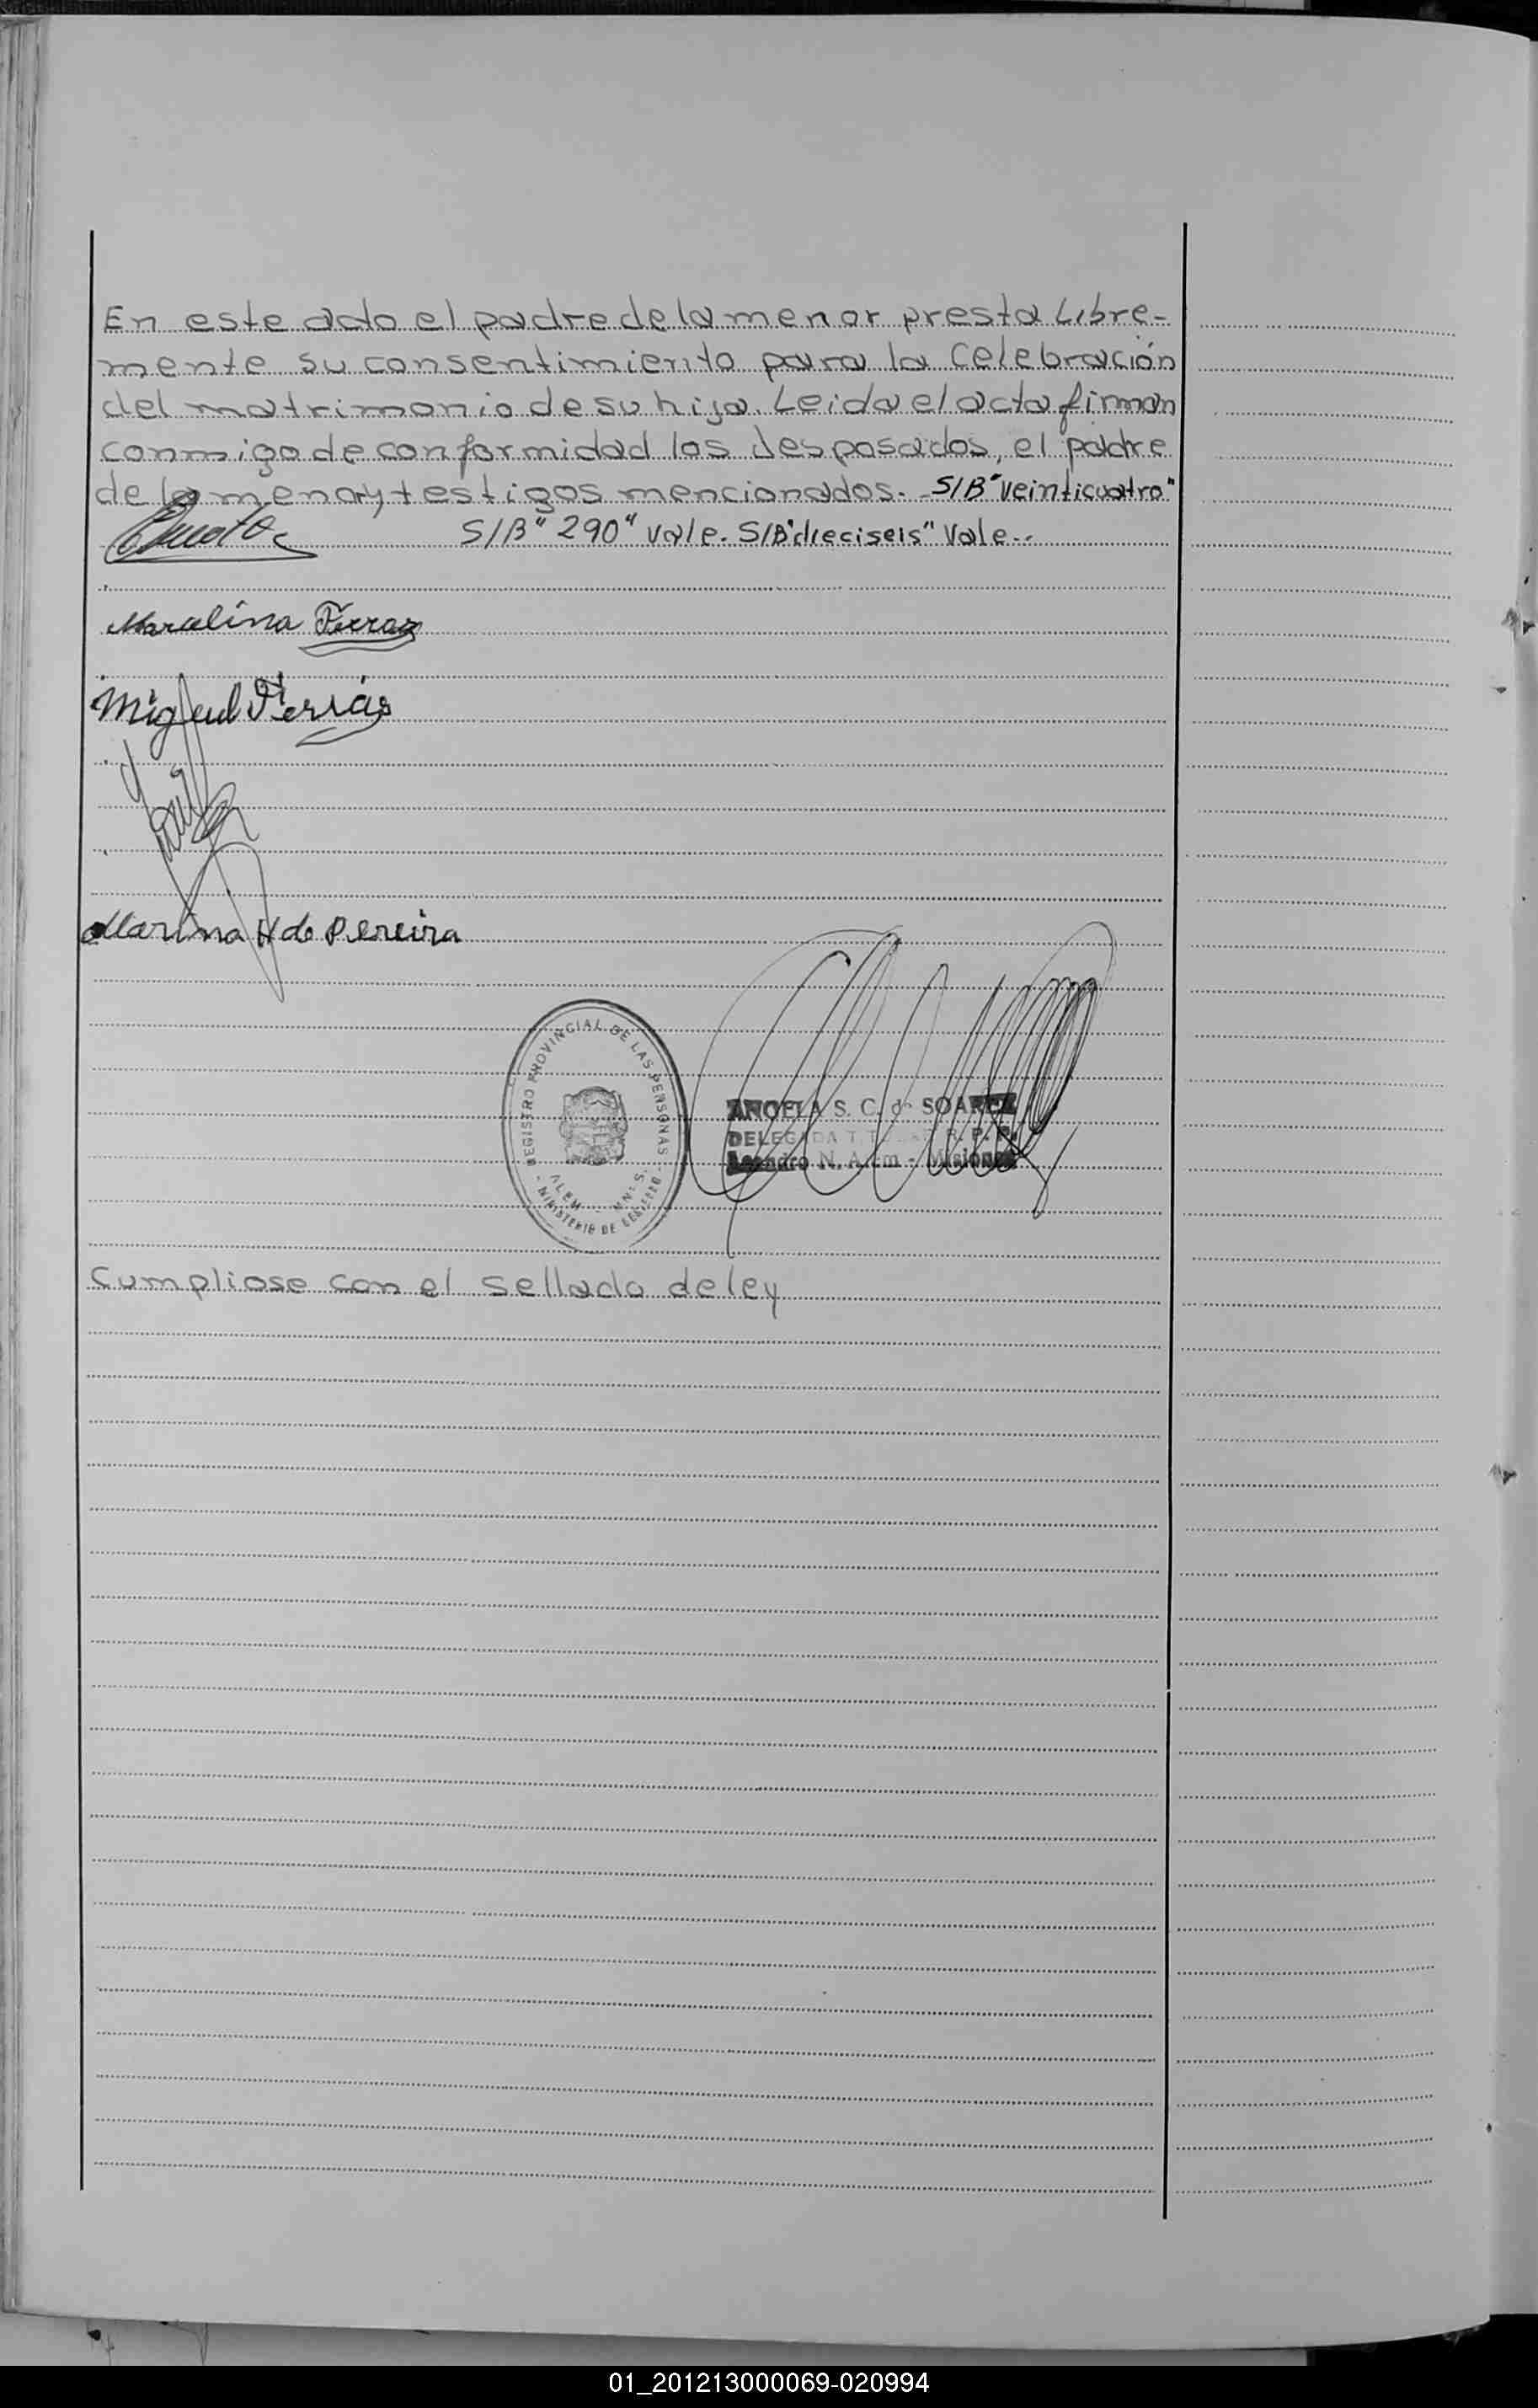 En este acto el padre de la menor presta Libre-
mente su consentimiento para la Celebración
del matrimonio de su hija. Leida el acta firman
conmigo de conformidad los desposados, el padre
de la menor y testigos mencionados. - S/B "veinticuatro"
S/B "290" vale. S/B "dieciseis" Vale..
Maralina Ferraz
Miguel Ferrás
Marina H de Pereira
REGISTRO PROVINCIAL DE LAS PERSONAS
ALEM - MNES.
- MINISTERIO DE GOBIERNO -
ANGELA S. C. de SOAREZ
DELEGADA TITULAR R. P. P.
Leandro N. Alem - Misiones
Cumpliose con el sellado de ley
01_201213000069-020994